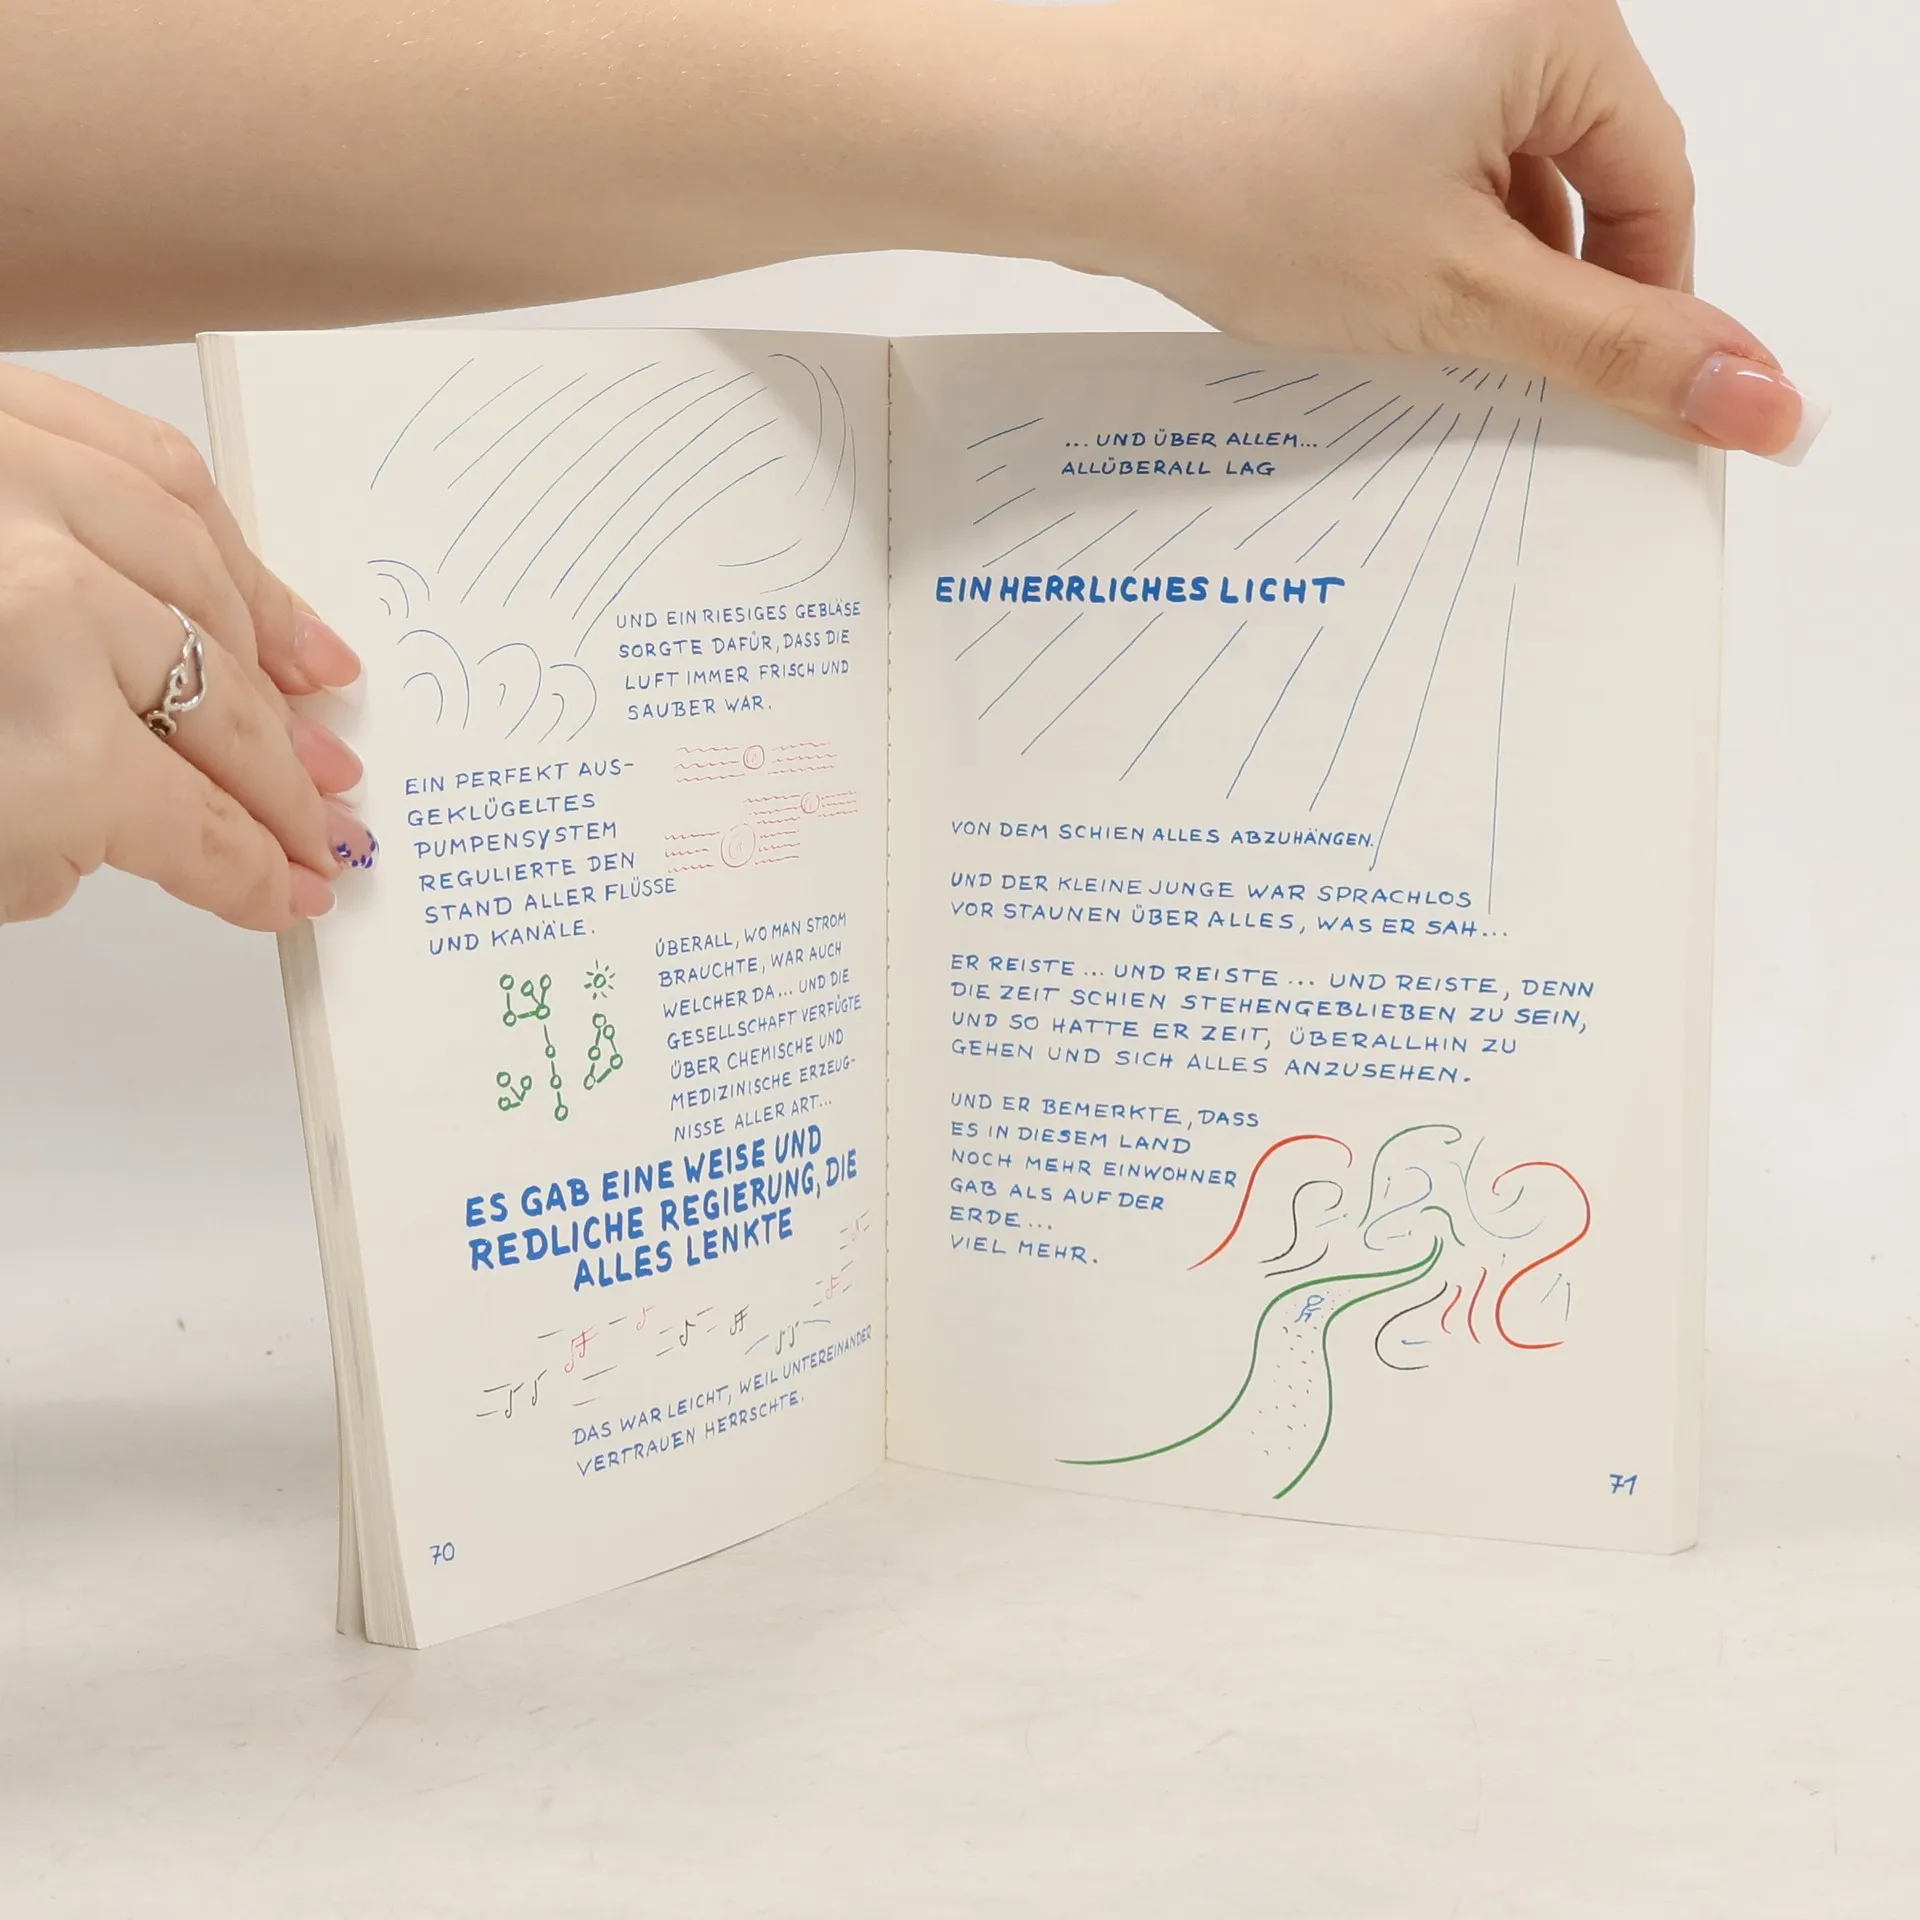 UND EIN RIESIGES GEBLÄSE
SORGTE DAFÜR, DASS DIE
LUFT IMMER FRISCH UND
SAUBER WAR.
EIN PERFEKT AUS-
GEKLÜGELTES
PUMPENSYSTEM
REGULIERTE DEN
STAND ALLER FLÜSSE
UND KANÄLE.
ÜBERALL, WO MAN STROM
BRAUCHTE, WAR AUCH
WELCHER DA... UND DIE
GESELLSCHAFT VERFÜGTE
ÜBER CHEMISCHE UND
MEDIZINISCHE ERZEUG-
NISSE ALLER ART...
ES GAB EINE WEISE UND
REDLICHE REGIERUNG, DIE
ALLES LENKTE
DAS WAR LEICHT, WEIL UNTEREINANDER
VERTRAUEN HERRSCHTE.
70
...UND ÜBER ALLEM...
ALLÜBERALL LAG
EIN HERRLICHES LICHT
VON DEM SCHIEN ALLES ABZUHÄNGEN.
UND DER KLEINE JUNGE WAR SPRACHLOS
VOR STAUNEN ÜBER ALLES, WAS ER SAH...
ER REISTE... UND REISTE... UND REISTE, DENN
DIE ZEIT SCHIEN STEHENGEBLIEBEN ZU SEIN,
UND SO HATTE ER ZEIT, ÜBERALLHIN ZU
GEHEN UND SICH ALLES ANZUSEHEN.
UND ER BEMERKTE, DASS
ES IN DIESEM LAND
NOCH MEHR EINWOHNER
GAB ALS AUF DER
ERDE...
VIEL MEHR.
71